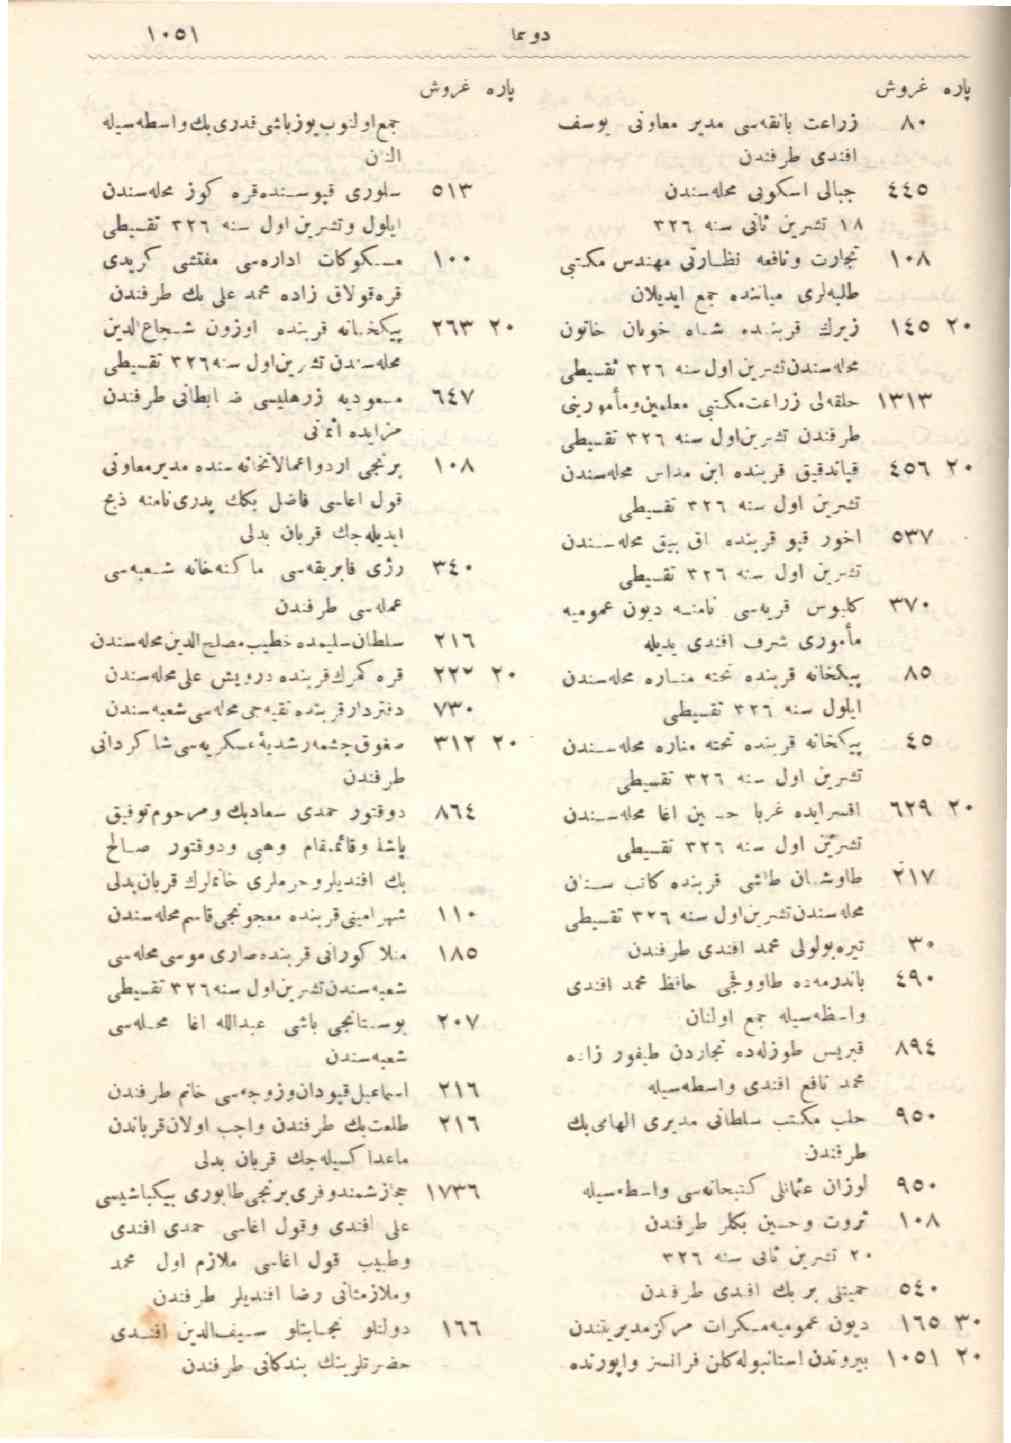 دوسما ١٠٥١
پاره غروش
٨٠ زراعت بانقه‌سی مدیر معاونی یوسف
افندی طرفندن
٤٤٥ جبالی اسکوبی محله‌سندن
١٨ تشرین ثانی سنه ٣٢٦
١٠٨ تجارت ونافعه نظارتی مهندس مکتبی
طلبه‌لری میاننده جمع ایدیلان
٢٠ ١٤٥ زیرك قربنده شاه خوبان خاتون
محله‌سندن تشرین اول سنه ٣٢٦ تقسیطی
١٣١٣ حلقه‌لی زراعت مکتبی معلمین ومأمورینی
طرفندن تشرین اول سنه ٣٢٦ تقسیطی
٢٠ ٤٥٦ قیاندقیق قربنده ابن مداس محله‌سندن
تشرین اول سنه ٣٢٦ تقسیطی
٥٣٧ اخور قپو قربنده اق بیق محله‌سندن
تشرین اول سنه ٣٢٦ تقسیطی
٣٧٠ کلبوس قریه‌سی نامنه دیون عمومیه
مأموری شرف افندی یدیله
٨٥ پیکخانه قربنده تحته مناره محله‌سندن
ایلول سنه ٣٢٦ تقسیطی
٤٥ پیکخانه قربنده تحته مناره محله‌سندن
تشرین اول سنه ٣٢٦ تقسیطی
٢٠ ٦٢٩ اقسرایده غربا حسین اغا محله‌سندن
تشرین اول سنه ٣٢٦ تقسیطی
٢١٧ طاوشان طاشی قربنده کاتب سنان
محله‌سندن تشرین اول سنه ٣٢٦ تقسیطی
٣٠ تیره‌بولولی محمد افندی طرفندن
٤٩٠ باندرمه‌ده طاووقجی حافظ محمد افندی
واسطه‌سیله جمع اولنان
٨٩٤ قبریس طوزله‌ده تجاردن طیفور زاده
محمد نافع افندی واسطه‌سیله
٩٥٠ حلب مکتب سلطانی مدیری الهامی بك
طرفندن
٩٥٠ لوزان عثمانلی کتبخانه‌سی واسطه‌سیله
١٠٨ ثروت وحسین بکلر طرفندن
٢٠ تشرین ثانی سنه ٣٢٦
٥٤٠ حمیتلی بر بك افندی طرفندن
٣٠ ١٦٥ دیون عمومیه مسکرات مرکز مدیریتندن
٢٠ ١٠٥١ بیروتدن استانبوله کلن فرانسز واپورنده
پاره غروش
جمع اولنوب یوزباشی قدری بك واسطه‌سیله
النان
٥١٣ سلوری قپوسنده قره کوز محله‌سندن
ایلول وتشرین اول سنه ٣٢٦ تقسیطی
١٠٠ مسکوکات اداره‌سی مفتشی کریدی
قره‌قولاق زاده محمد علی بك طرفندن
٢٠ ٢٦٣ پیکخانه قربنده اوزون شجاع الدین
محله‌سندن تشرین اول سنه ٣٢٦ تقسیطی
٦٤٧ مسعودیه زرهلیسی ضابطانی طرفندن
مزایده اثمانی
١٠٨ برنجی اردو اعمالاتخانه‌سنده مدیر معاونی
قول اغاسی فاضل بکك پدری نامنه ذبح
ایدیله‌جك قربان بدلی
٣٤٠ رژی فابریقه‌سی ماکنه‌خانه شعبه‌سی
عمله‌سی طرفندن
٢١٦ سلطان سلیمده خطیب مصلح الدین محله‌سندن
٢٠ ٢٢٢ قره کمرك قربنده درویش علی محله‌سندن
٧٣٠ دفتردار قربنده تقیه‌جی محله‌سی شعبه‌سندن
٢٠ ٣١٢ صغوق چشمه رشدیۀ عسکریه‌سی شاکردانی
طرفندن
٨٦٤ دوقتور حمدی سعادبك ومرحوم توفیق
پاشا وقائمقام وهبی ودوقتور صالح
بك افندیلر وحرملری خانملرك قربان بدلی
١١٠ شهرامینی قربنده معجونجی قاسم محله‌سندن
١٨٥ منلا کورانی قربنده صاری موسی محله‌سی
شعبه‌سندن تشرین اول سنه ٣٢٦ تقسیطی
٢٠٧ بوستانجی باشی عبدالله اغا محله‌سی
شعبه‌سندن
٢١٦ اسماعیل قپودان وزوجه‌سی خانم طرفندن
٢١٦ طلعت بك طرفندن واجب اولان قرباندن
ماعدا کسیله‌جك قربان بدلی
١٧٣٦ حجاز شمندوفری برنجی طابوری بیکباشیسی
علی افندی وقول اغاسی حمدی افندی
وطبیب قول اغاسی ملازم اول محمد
وملازم ثانی رضا افندیلر طرفندن
١٦٦ دولتلو نجابتلو سیف الدین افندی
حضرتلرینك بندکانی طرفندن